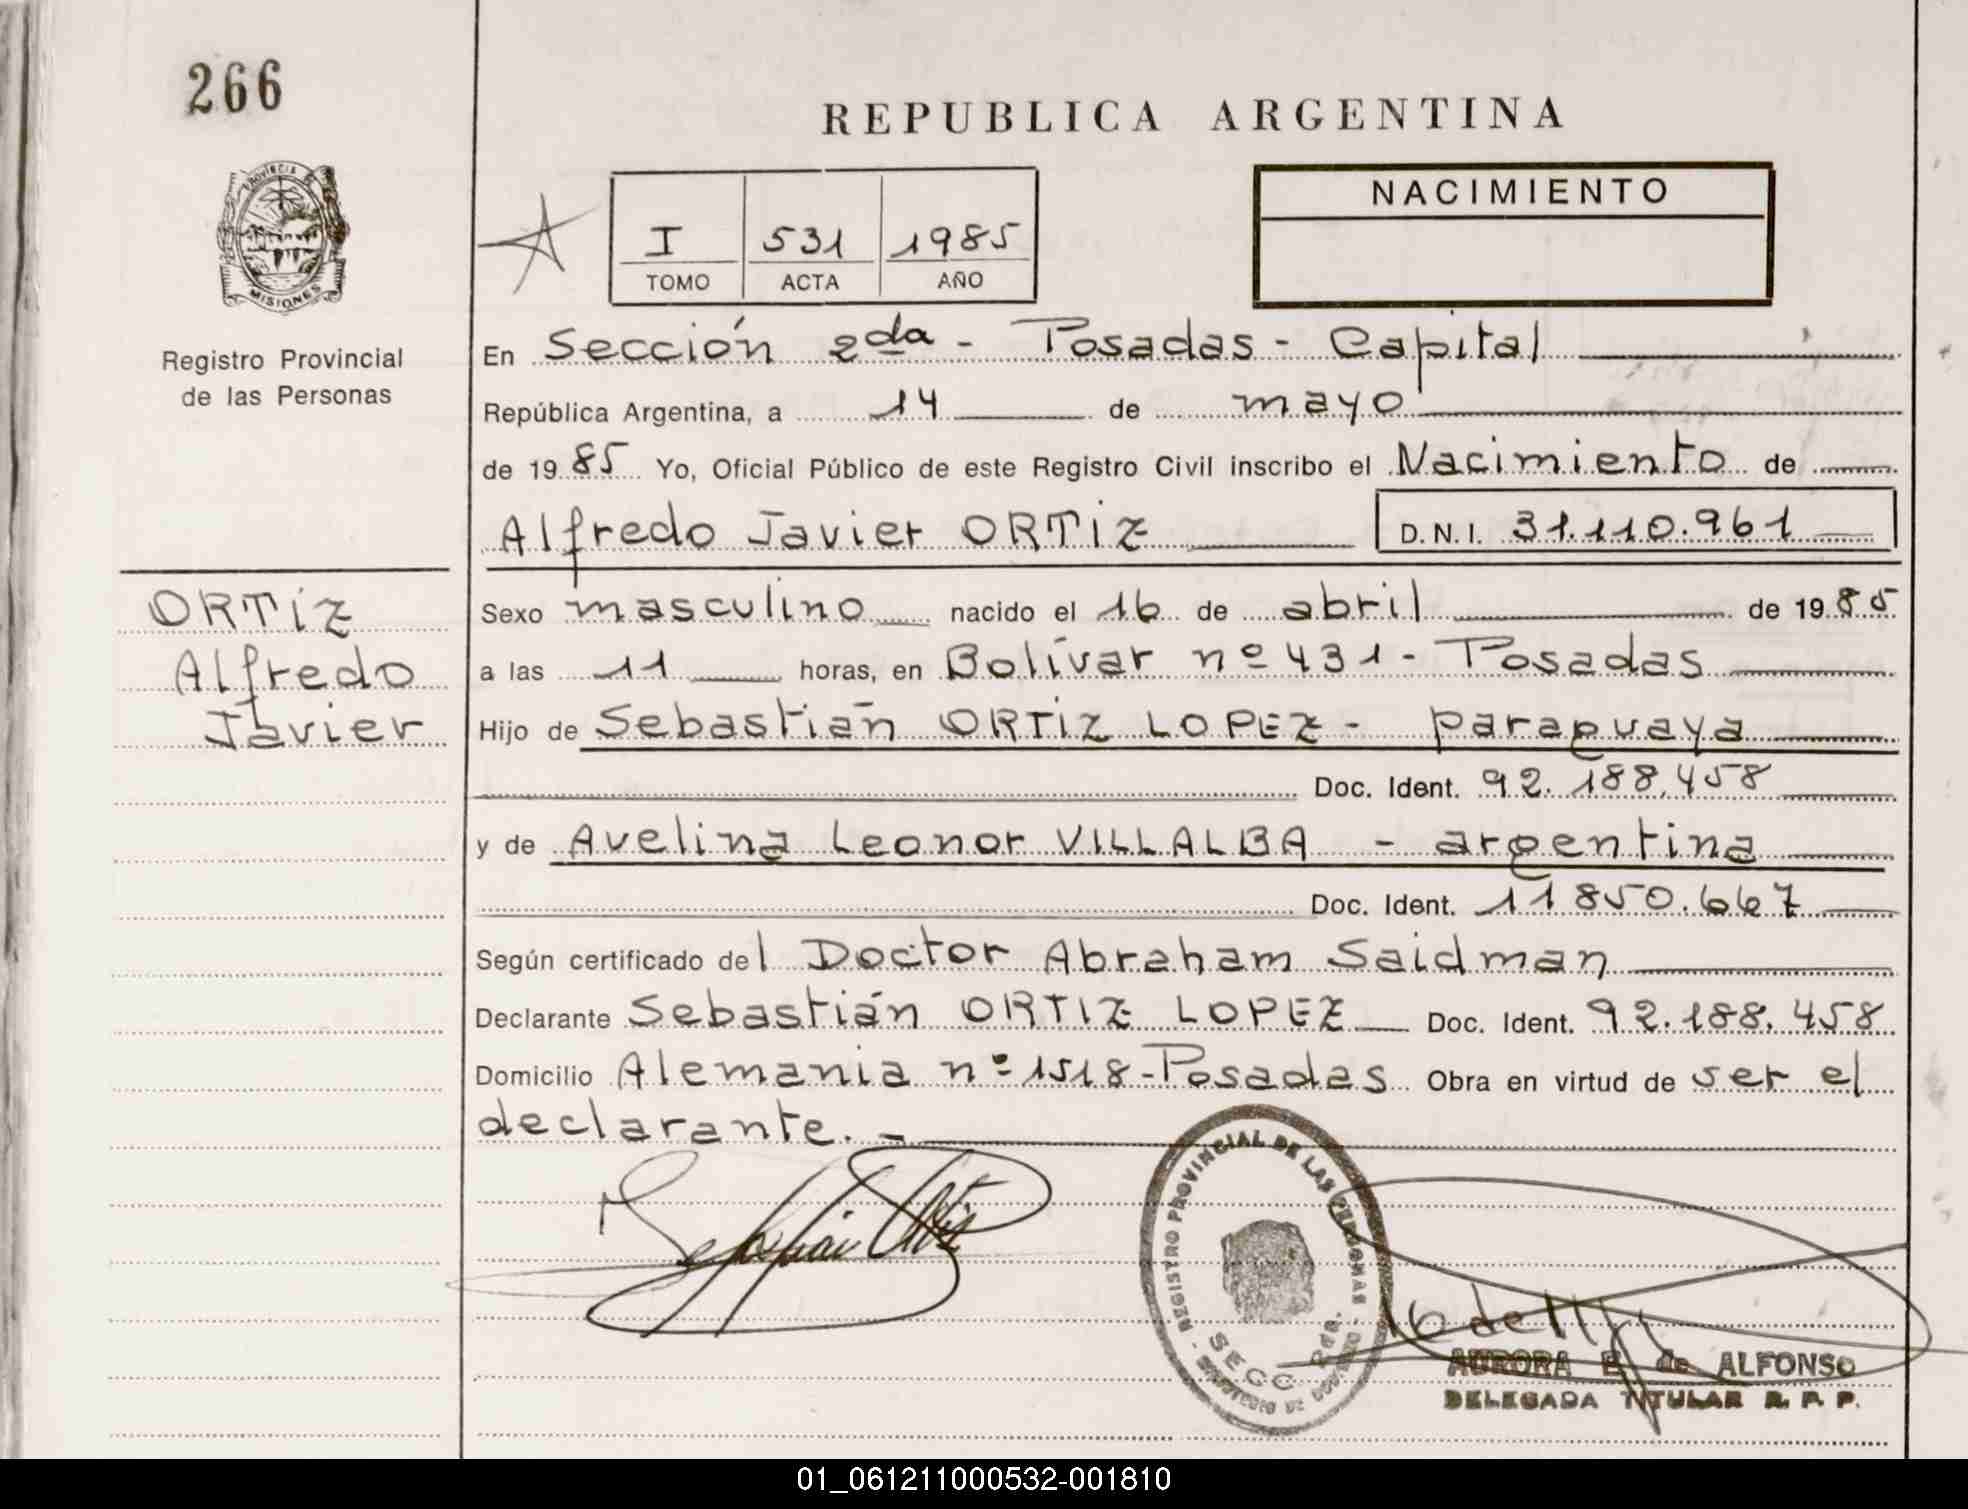 266
REPUBLICA ARGENTINA
PROVINCIA DE
MISIONES
Registro Provincial
de las Personas
I 531 1985
TOMO ACTA AÑO
NACIMIENTO
En Sección 2da - Posadas - Capital
República Argentina, a 14 de mayo
de 1985 Yo, Oficial Público de este Registro Civil inscribo el Nacimiento de
Alfredo Javier ORTIZ D.N.I. 31.110.961
ORTIZ
Alfredo
Javier
Sexo masculino nacido el 16 de abril de 1985
a las 11 horas, en Bolívar nº 431 - Posadas
Hijo de Sebastián ORTIZ LOPEZ - paraguaya
Doc. Ident. 92.188.458
y de Avelina Leonor VILLALBA - argentina
Doc. Ident. 11 850.667
Según certificado del Doctor Abraham Saidman
Declarante Sebastián ORTIZ LOPEZ Doc. Ident. 92.188.458
Domicilio Alemania nº 1518 - Posadas Obra en virtud de ser el
declarante. -
REGISTRO PROVINCIAL DE LAS PERSONAS
SECC 2da.
AURORA E de ALFONSO
DELEGADA TITULAR R. P. P.
01_061211000532-001810